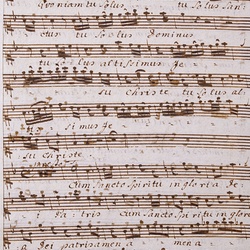 Quoniam tu solus tu solus San
ctus tu solus Dominus
tu solus altissimus Je
su Christe, tu solus al
simus Je
su Christe
Cum Sancto Spiritu in gloria De
i Patris Cum Sancto Spiritu in glori
a Dei patris amen a men a